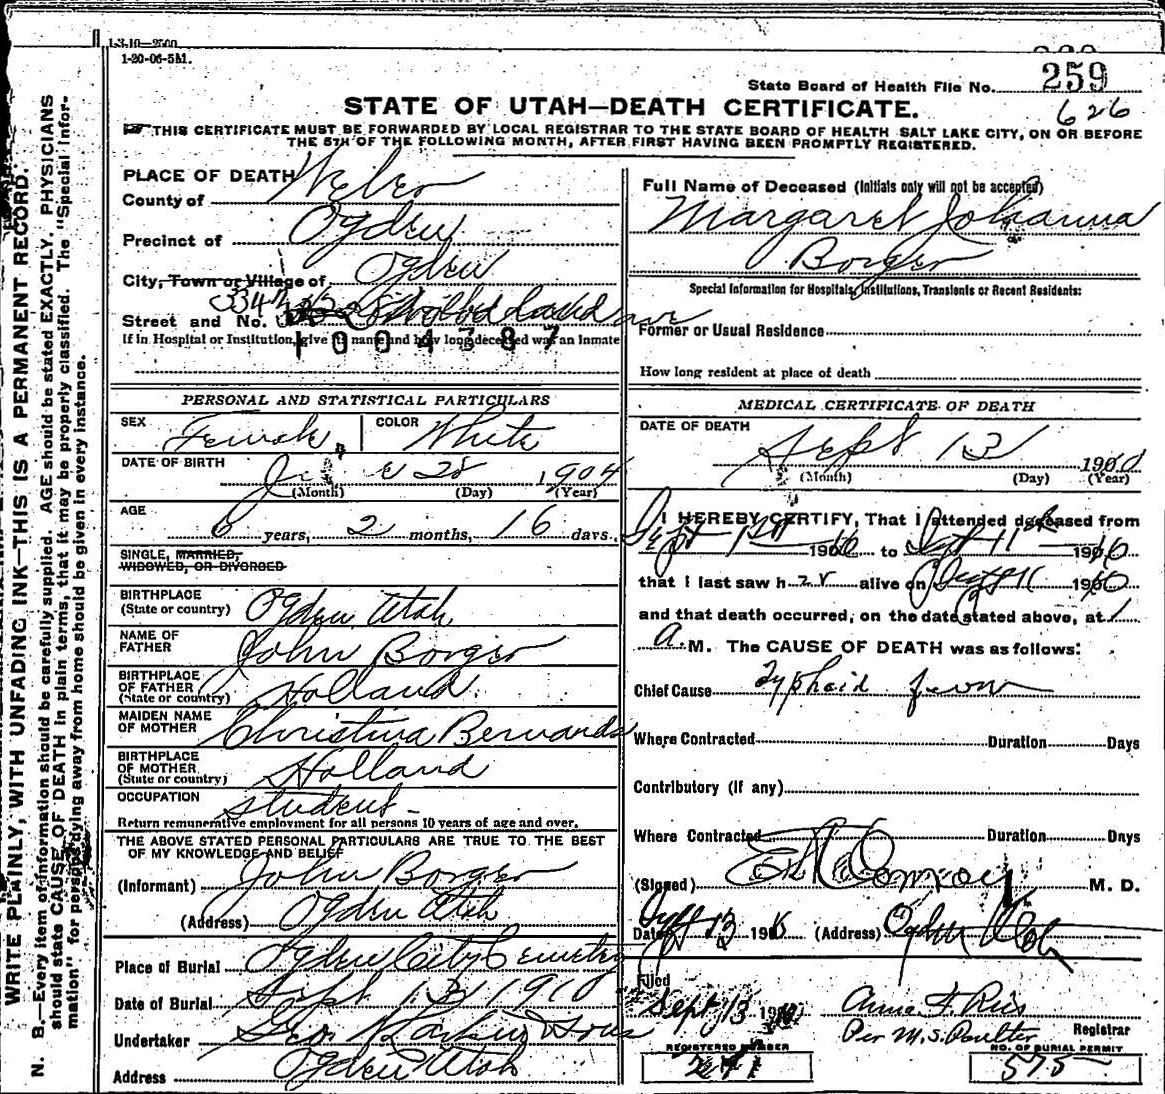 1-3-10—2500
1-20-06-5M.
State Board of Health File No. 259
626
STATE OF UTAH—DEATH CERTIFICATE.
THIS CERTIFICATE MUST BE FORWARDED BY LOCAL REGISTRAR TO THE STATE BOARD OF HEALTH SALT LAKE CITY, ON OR BEFORE
THE 5TH OF THE FOLLOWING MONTH, AFTER FIRST HAVING BEEN PROMPTLY REGISTERED.
WRITE PLAINLY, WITH UNFADING INK—THIS IS A PERMANENT RECORD.
N. B.—Every item of information should be carefully supplied. AGE should be stated EXACTLY. PHYSICIANS
should state CAUSE OF DEATH in plain terms, that it may be properly classified. The "Special Infor-
mation" for persons dying away from home should be given in every instance.
PLACE OF DEATH
County of Weber
Precinct of Ogden
City, Town or Village of Ogden
Street and No. 334 ave
If in Hospital or Institution, give its name and how long deceased was an Inmate
1004387
PERSONAL AND STATISTICAL PARTICULARS
SEX Female COLOR White
DATE OF BIRTH June 28 1904
(Month) (Day) (Year)
AGE 6 years, 2 months, 16 days.
SINGLE, MARRIED,
WIDOWED, OR DIVORCED
BIRTHPLACE
(State or country) Ogden Utah
NAME OF
FATHER John Borger
BIRTHPLACE
OF FATHER
(State or country) Holland
MAIDEN NAME
OF MOTHER Christina Bernards
BIRTHPLACE
OF MOTHER
(State or country) Holland
OCCUPATION student
Return remunerative employment for all persons 10 years of age and over.
THE ABOVE STATED PERSONAL PARTICULARS ARE TRUE TO THE BEST
OF MY KNOWLEDGE AND BELIEF
(Informant) John Borger
(Address) Ogden Utah
Place of Burial Ogden City Cemetery
Date of Burial Sept 13 1910
Undertaker Geo Larkin & Sons
Address Ogden Utah
Full Name of Deceased (Initials only will not be accepted)
Margaret Johanna
Borger
Special Information for Hospitals, Institutions, Transients or Recent Residents:
Former or Usual Residence
How long resident at place of death
MEDICAL CERTIFICATE OF DEATH
DATE OF DEATH
Sept 13 1910
(Month) (Day) (Year)
I HEREBY CERTIFY, That I attended deceased from
Sept 1st 1910 to Sept 11th 1910
that I last saw her alive on Sept 11 1910
and that death occurred, on the date stated above, at 1
A. M. The CAUSE OF DEATH was as follows:
Chief Cause Typhoid fever
Where Contracted Duration Days
Contributory (if any)
Where Contracted Duration Days
(Signed) Conroy M. D.
Date Sept 13 190 (Address) Ogden Utah
Filed
Sept 13 1910 Anna F. Ries
Per M. S. Poulter Registrar
REGISTERED NUMBER NO. OF BURIAL PERMIT
271 575